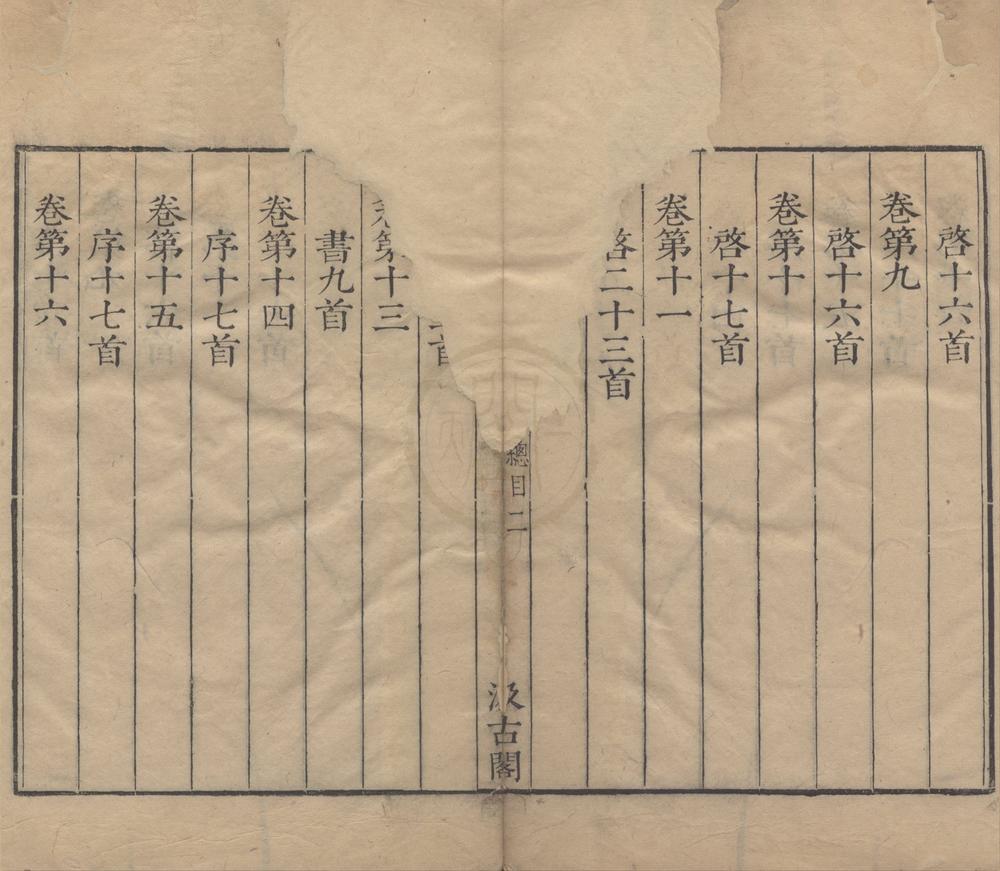 啓十六首
卷第九
啓十六首
卷第十
啓十七首
卷第十一
啓二十三首
總目二
汲古閣
首
卷第十三
書九首
卷第十四
序十七首
卷第十五
序十七首
卷第十六